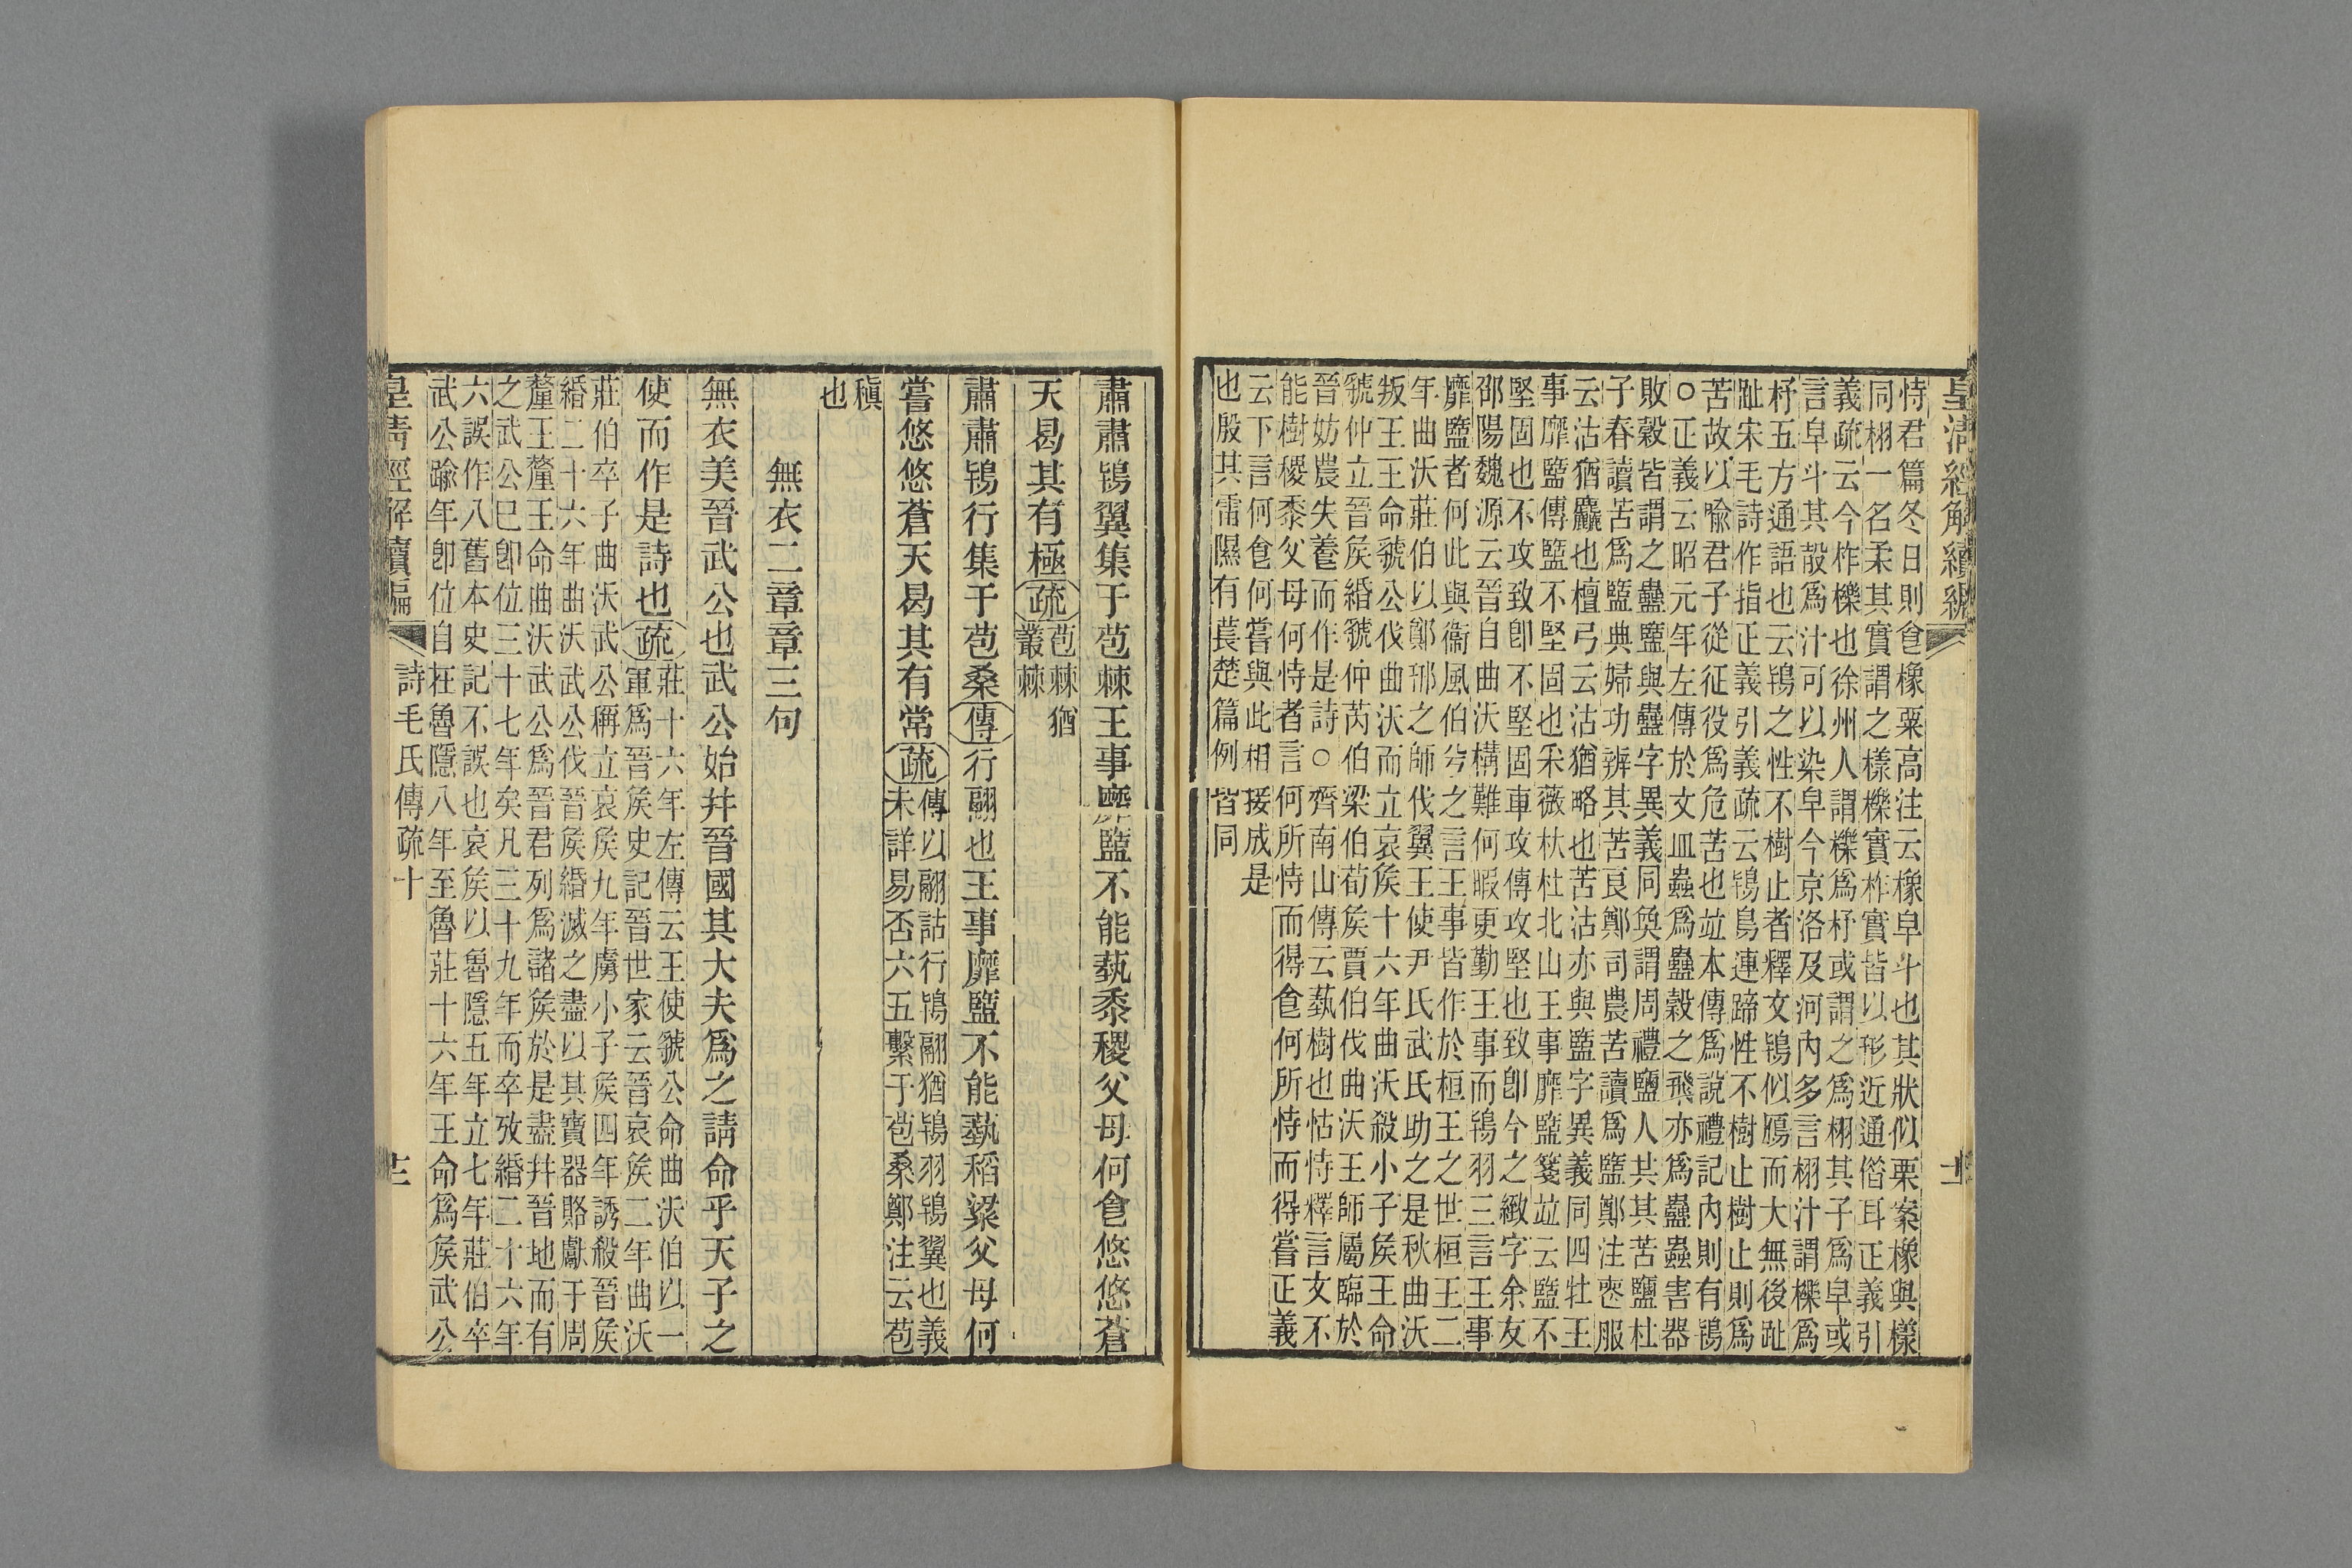 皇清經解續編
恃君篇冬日則㑹橡粟高注云橡皁斗也其狀似栗案橡與樣
同栩一名柔其實謂之樣櫟實柞實皆以形近通偺耳正義引
義疏云今柞櫟也徐州人謂櫟爲杼或謂之爲栩其子爲皁或
言皁斗其殼爲汁可以染皁今京洛及河內多言栩汁謂櫟爲
杼五方通語也云鴇之性不樹止者釋文鴇似鴈而大無後趾
趾宋毛詩作指正義引義疏云鴇鳥連蹄性不樹止樹止則爲
苦故以喻君子從征役爲危苦也竝本傳爲說禮記內則有鴇
○正義云昭元年左傳於文皿蟲爲蠱穀之飛亦爲蠱蟲害器
敗穀皆謂之蠱盬與蠱字異義同奂謂周禮鹽人共其苦鹽杜
子春讀苦爲盬典婦功辨其苦良鄭司農苦讀爲盬鄭注㐮服
云沽猶麤也檀弓云沽猶略也苦沽亦與盬字異義同四牡王
事靡盬傳盬不堅固也采薇杕杜北山王事靡盬箋竝云盬不
堅固也不攻致卽不堅固車攻傳攻堅也致卽今之緻字余友
邵陽魏源云晉自曲沃構難何暇更勤王事而鴇羽三言王事
靡盬者何此與衞風伯兮之言王事皆作於桓王之世桓王二
年曲沃莊伯以鄭邢之師伐翼王使尹氏武氏助之是秋曲沃
叛王王命虢公伐曲沃而立哀矦十六年曲沃殺小子矦王命
虢仲立晉矦緡虢仲芮伯梁伯荀矦賈伯伐曲沃王師屬臨於
晉妨農失養而作是詩○齊南山傳云蓺樹也怙恃釋言文不
能樹稷黍父母何恃者言何所恃而得㑹何所恃而得嘗正義
云下言何㑹何嘗與此相接成是
也殷其靁隰有萇楚篇例皆同
肅肅鴇翼集于苞棘王事靡盬不能蓺黍稷父母何㑹悠悠蒼
天曷其有極疏苞棘猶
叢棘
肅肅鴇行集于苞桑傳行翮也王事靡盬不能蓺稻粱父母何
嘗悠悠蒼天曷其有常疏傳以翮詁行鴇翮猶鴇羽鴇翼也義
未詳易否六五繫于苞桑鄭注云苞
稹
也
無衣二章章三句
無衣美晉武公也武公始幷晉國其大夫爲之請命乎天子之
使而作是詩也疏莊十六年左傳云王使虢公命曲沃伯以一
軍爲晉矦史記晉世家云晉哀矦二年曲沃
莊伯卒子曲沃武公稱立哀矦九年虜小子矦四年誘殺晉矦
緡二十六年曲沃武公伐晉矦緡滅之盡以其寶器賂獻于周
釐王釐王命曲沃武公爲晉君列爲諸矦於是盡幷晉地而有
之武公已卽位三十七年矣凡三十九年而卒攷緡二十六年
六誤作八舊本史記不誤也哀矦以魯隱五年立七年莊伯卒
武公踰年卽位自在魯隱八年至魯莊十六年王命爲矦武公
皇清經解續編 詩毛氏傳疏十